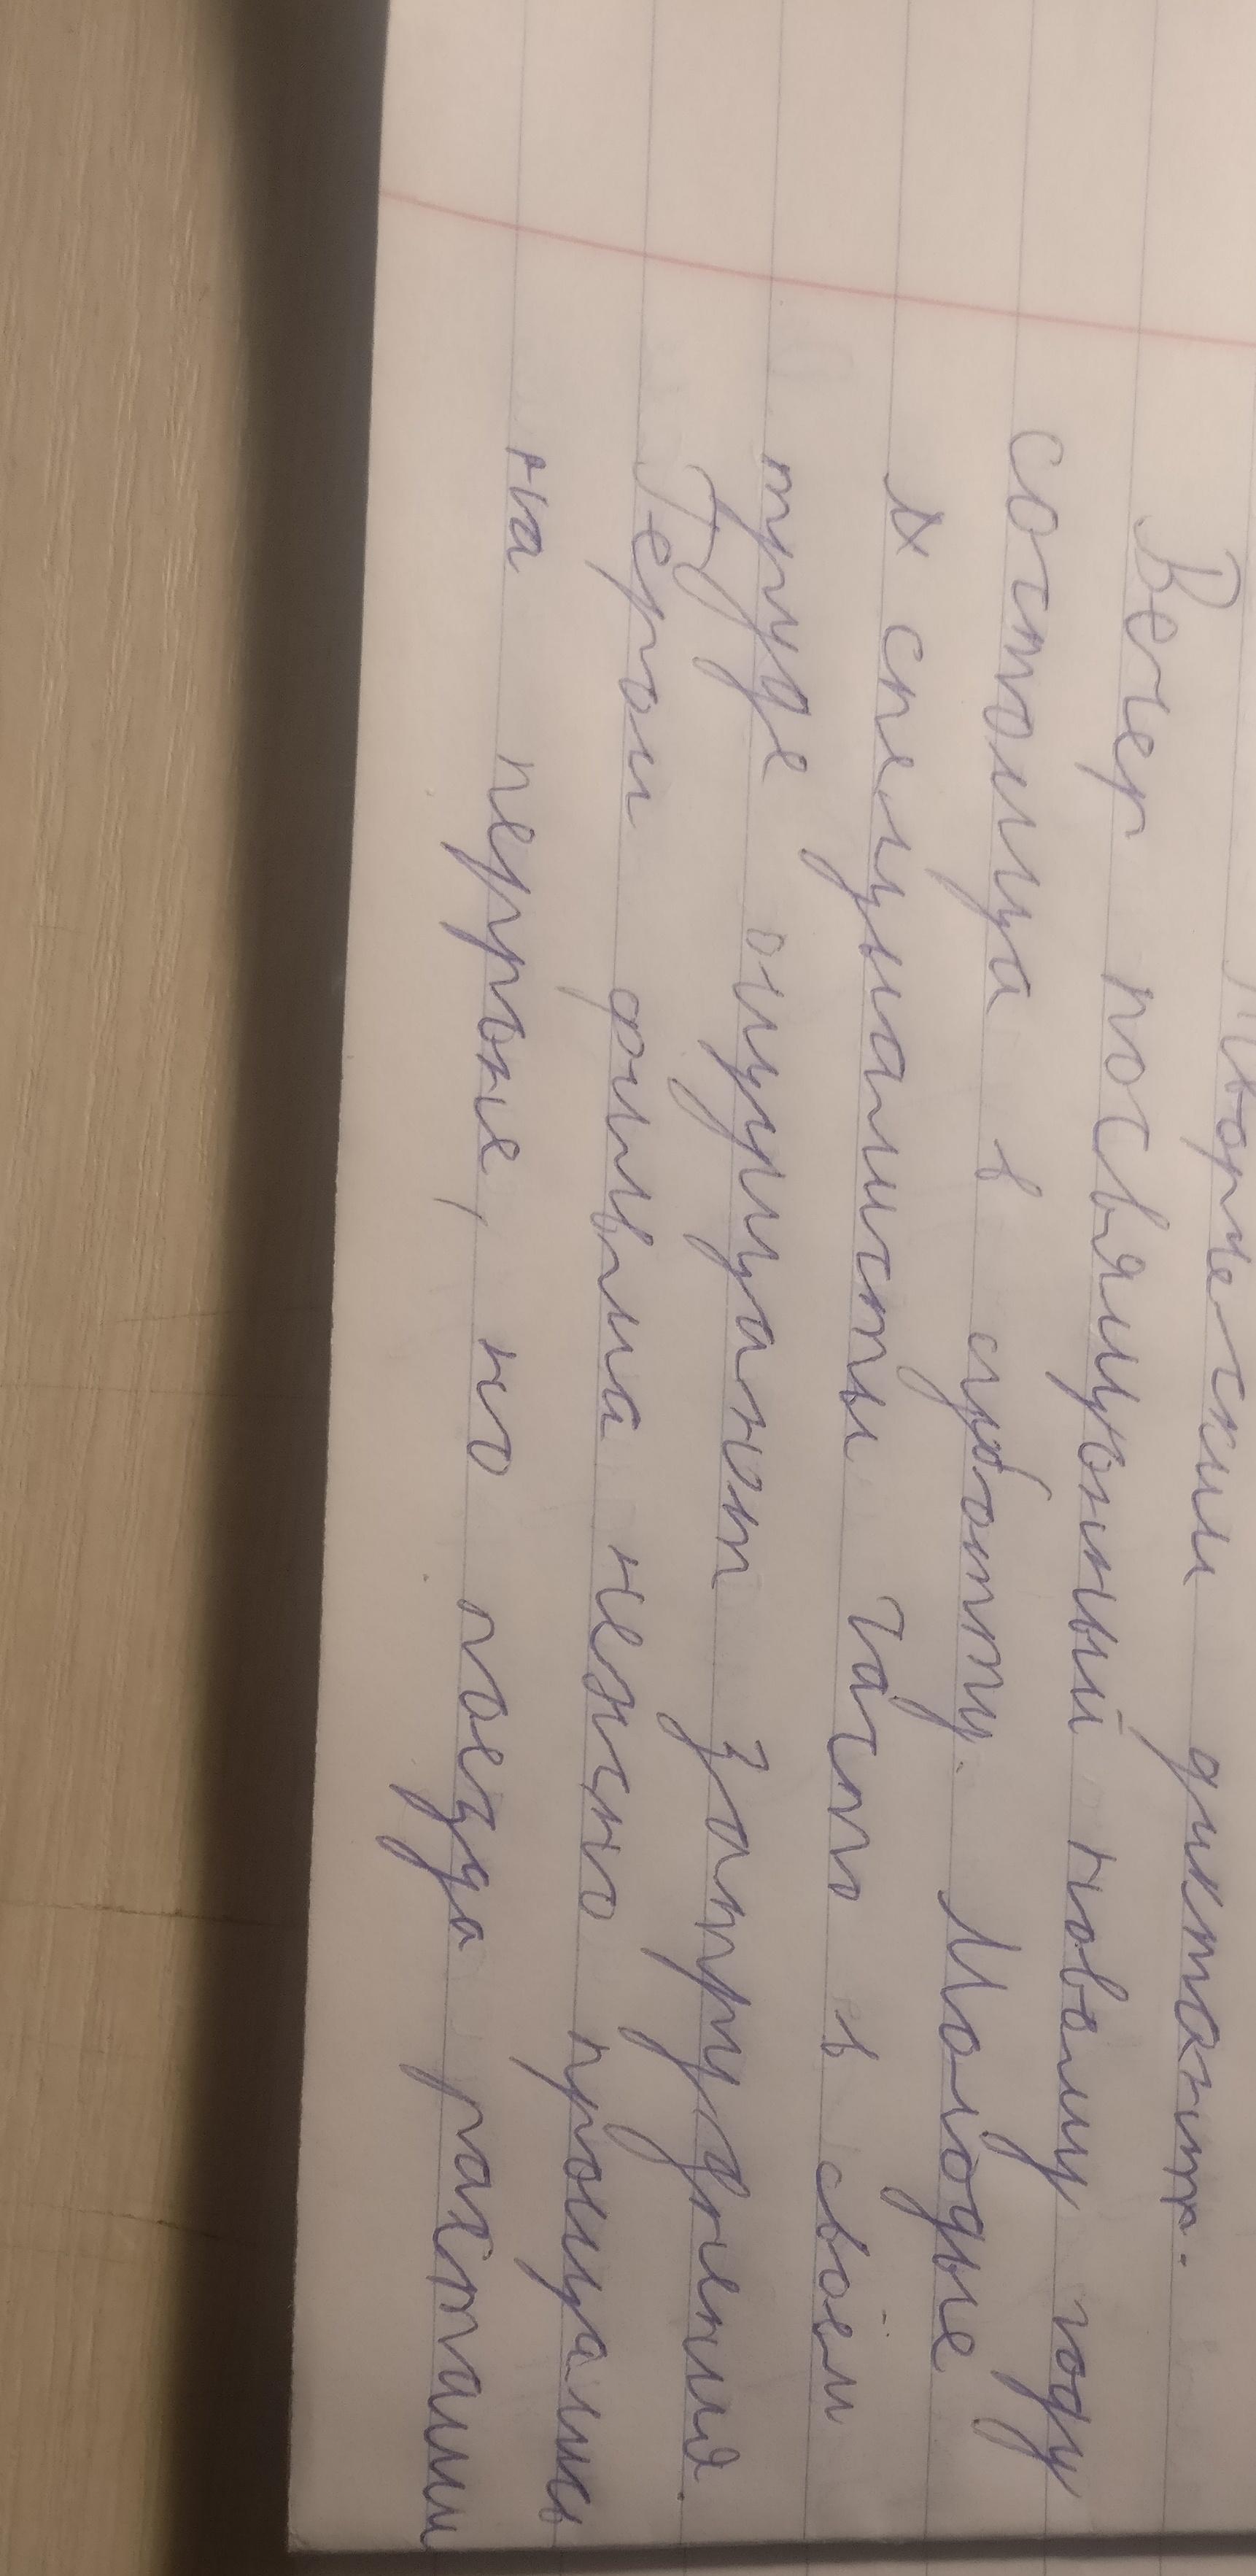 Творческии диктант.
Вечер посвящонный новому году
состоица в суботту. Молодые
специалисты часто в своём
труде ощущают затруднения.
Герои фильма нежно прощались
на перроне, но поезда